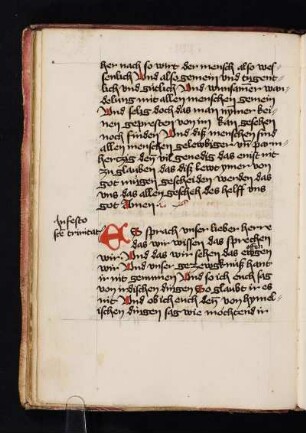 her nach so wirt der mensch also wes-
senlich Vnd also gemein vnd tugent-
lich vnd gütlich Vnd wunsamen wan-
delung mit allen menschen gemein
Vnd selig doch das man nymer kei-
nen gepresten von im kan gesehen
noch finden Vnd diß menschen sind
allen menschen gelewbigen vnd parm-
herczig den vil genedig das enist nit
zu glauben das diß lewt ymer von
got mügen gescheiden werden das
vns das allen geschech des helff vns
got Amen
In festo
sce trinitatis
Es sprach vnser lieber herre
das wir wissen das sprechen
wir Vnd das wir sehen das
wir Vnd vnser gezewgknüß hant
ir nit genumen Vnd so ich euch sag
von irdischen dingen So glaubt ir es
nit Vnd ob ich euch den von hymel-
ischen dingen sag wie mochtend ir